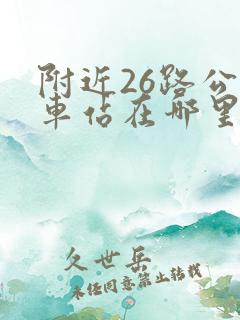 附近26路公
車站在哪里
久世岳
未经同意禁止转载